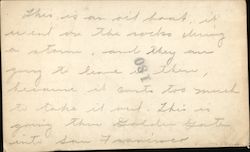 This is an oil boat, it
went on the rocks during
a storm, and they are
going to leave it there,
because it costs too much
to take it out. This is
going thru Golden Gate
into San Francisco
180